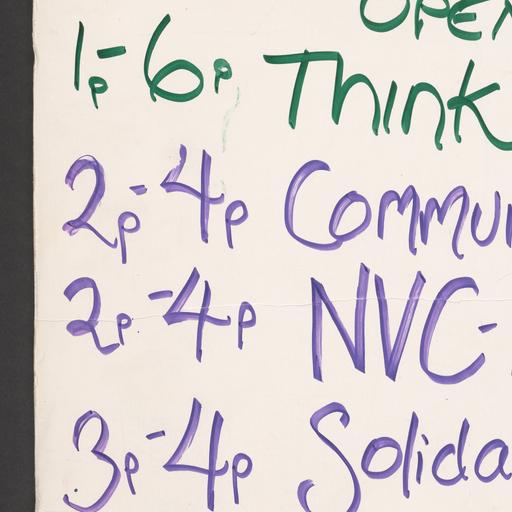 OPEN
1p-6p Think
2p-4p Commun
2p-4p NVC-
3p-4p Solida